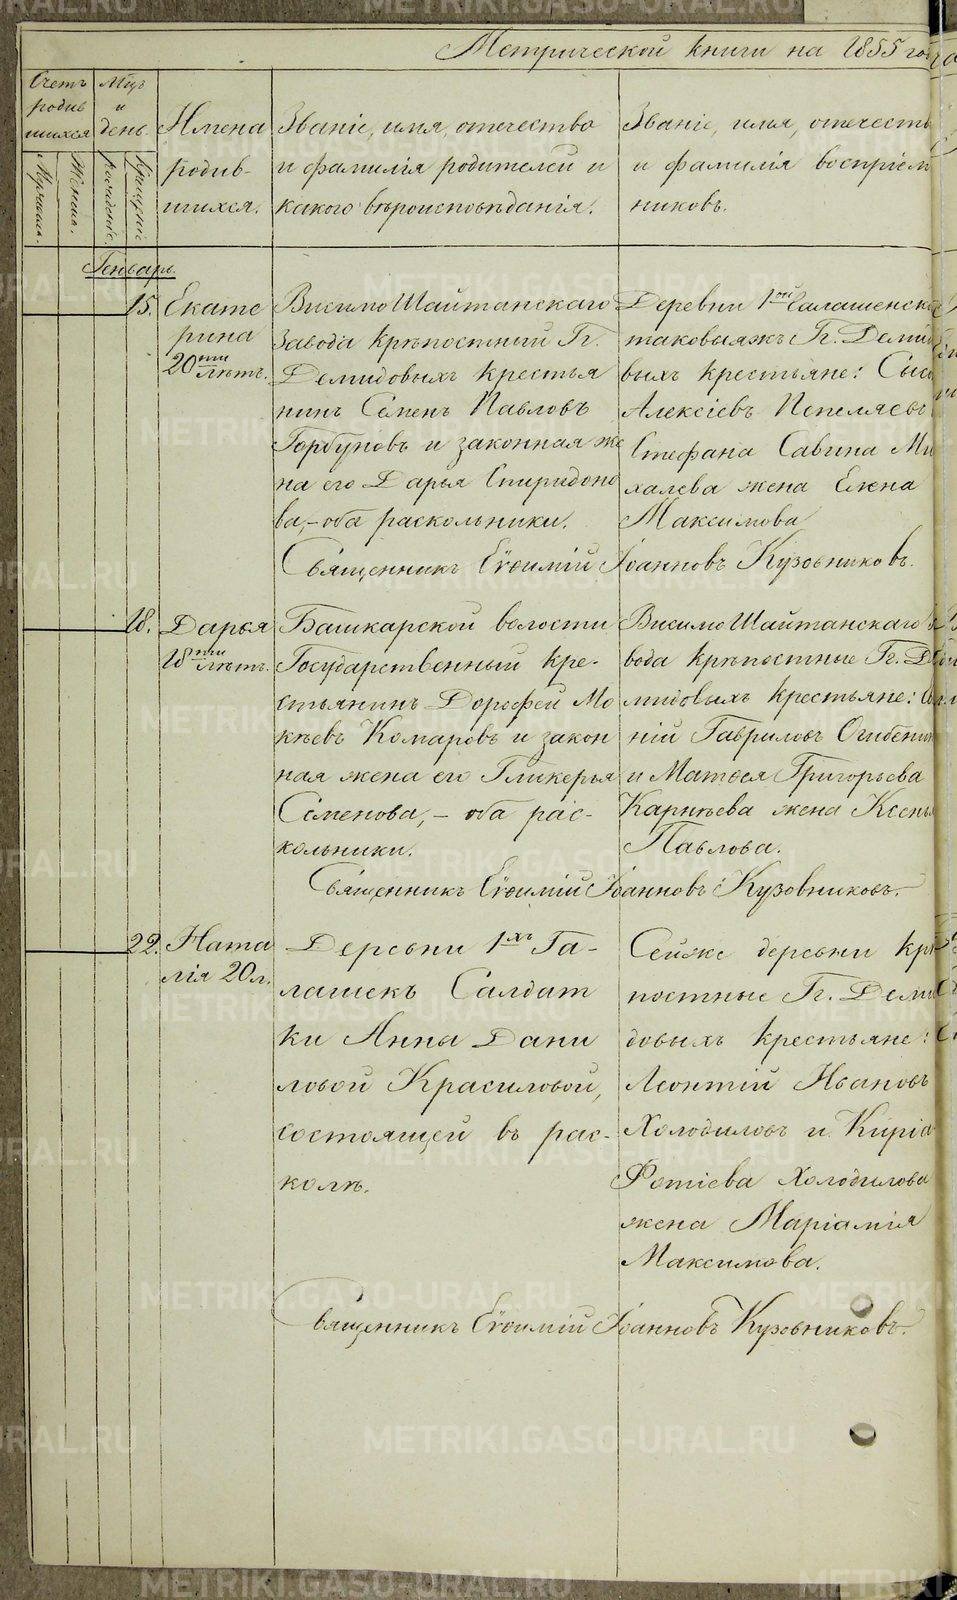 Метрической книги на 1855 год
Счетъ
родив
шихся
Мужеска.
Женска.
Мѣц
и
день.
Рожденіе.
Крещеніе
Имена
родив-
шихся.
Званіе, имя, отечество
и фамилія родителей и
какого вѣроисповѣданія.
Званіе, имя, отечеств
и фамилія воспріем
никовъ.
Генварь.
15.
Екате
рина
20ти лѣтъ.
ВисимоШайтанскаго
Завода крѣпостный Гг.
Демидовыхъ крестья
нинъ Семенъ Павловъ
Горбуновъ и законная же
на его Дарья Спиридоно
ва,-оба раскольники.
Деревни 1ой Галашенск
таковыяжъ Гг. Демид
выхъ крестьяне: Сысо
Алексіевъ Пепеляевъ
Стефана Савина Ми
халева жена Елена
Максимова
Священникъ Евѳимій Іоанновъ Кузовниковъ.
18.
Дарья
18ти лѣтъ.
Башкарской волости
Государственный кре-
стьянинъ Дорофей Мо
кѣевъ Комаровъ и закон
ная жена его Гликерья
Семенова,- оба рас-
кольники.
ВисимоШайтанскаго
вода крѣпостные Гг. Де
мидовыхъ крестьяне:
ній Гавриловъ Огибенин
и Матѳея Григорьева
Карпѣева жена Ксень
Павлова.
Священникъ Евѳимій Іоанновъ Кузовниковъ.
22.
Ната
лія 20 л.
Деревни 1хъ Га-
лашекъ Салдат
ки Анны Дани
ловой Красиловой,
состоящей въ рас-
колѣ.
Сейже деревни крѣ
постные Гг. Деми
довыхъ крестьяне:
Леонтій Ивановъ
Холодиловъ и Киріа
Фотіева Холодилова
жена Маріамія
Максимова.
Священникъ Евѳимій Іоанновъ Кузовниковъ.
METRIKI.GASO-URAL.RU